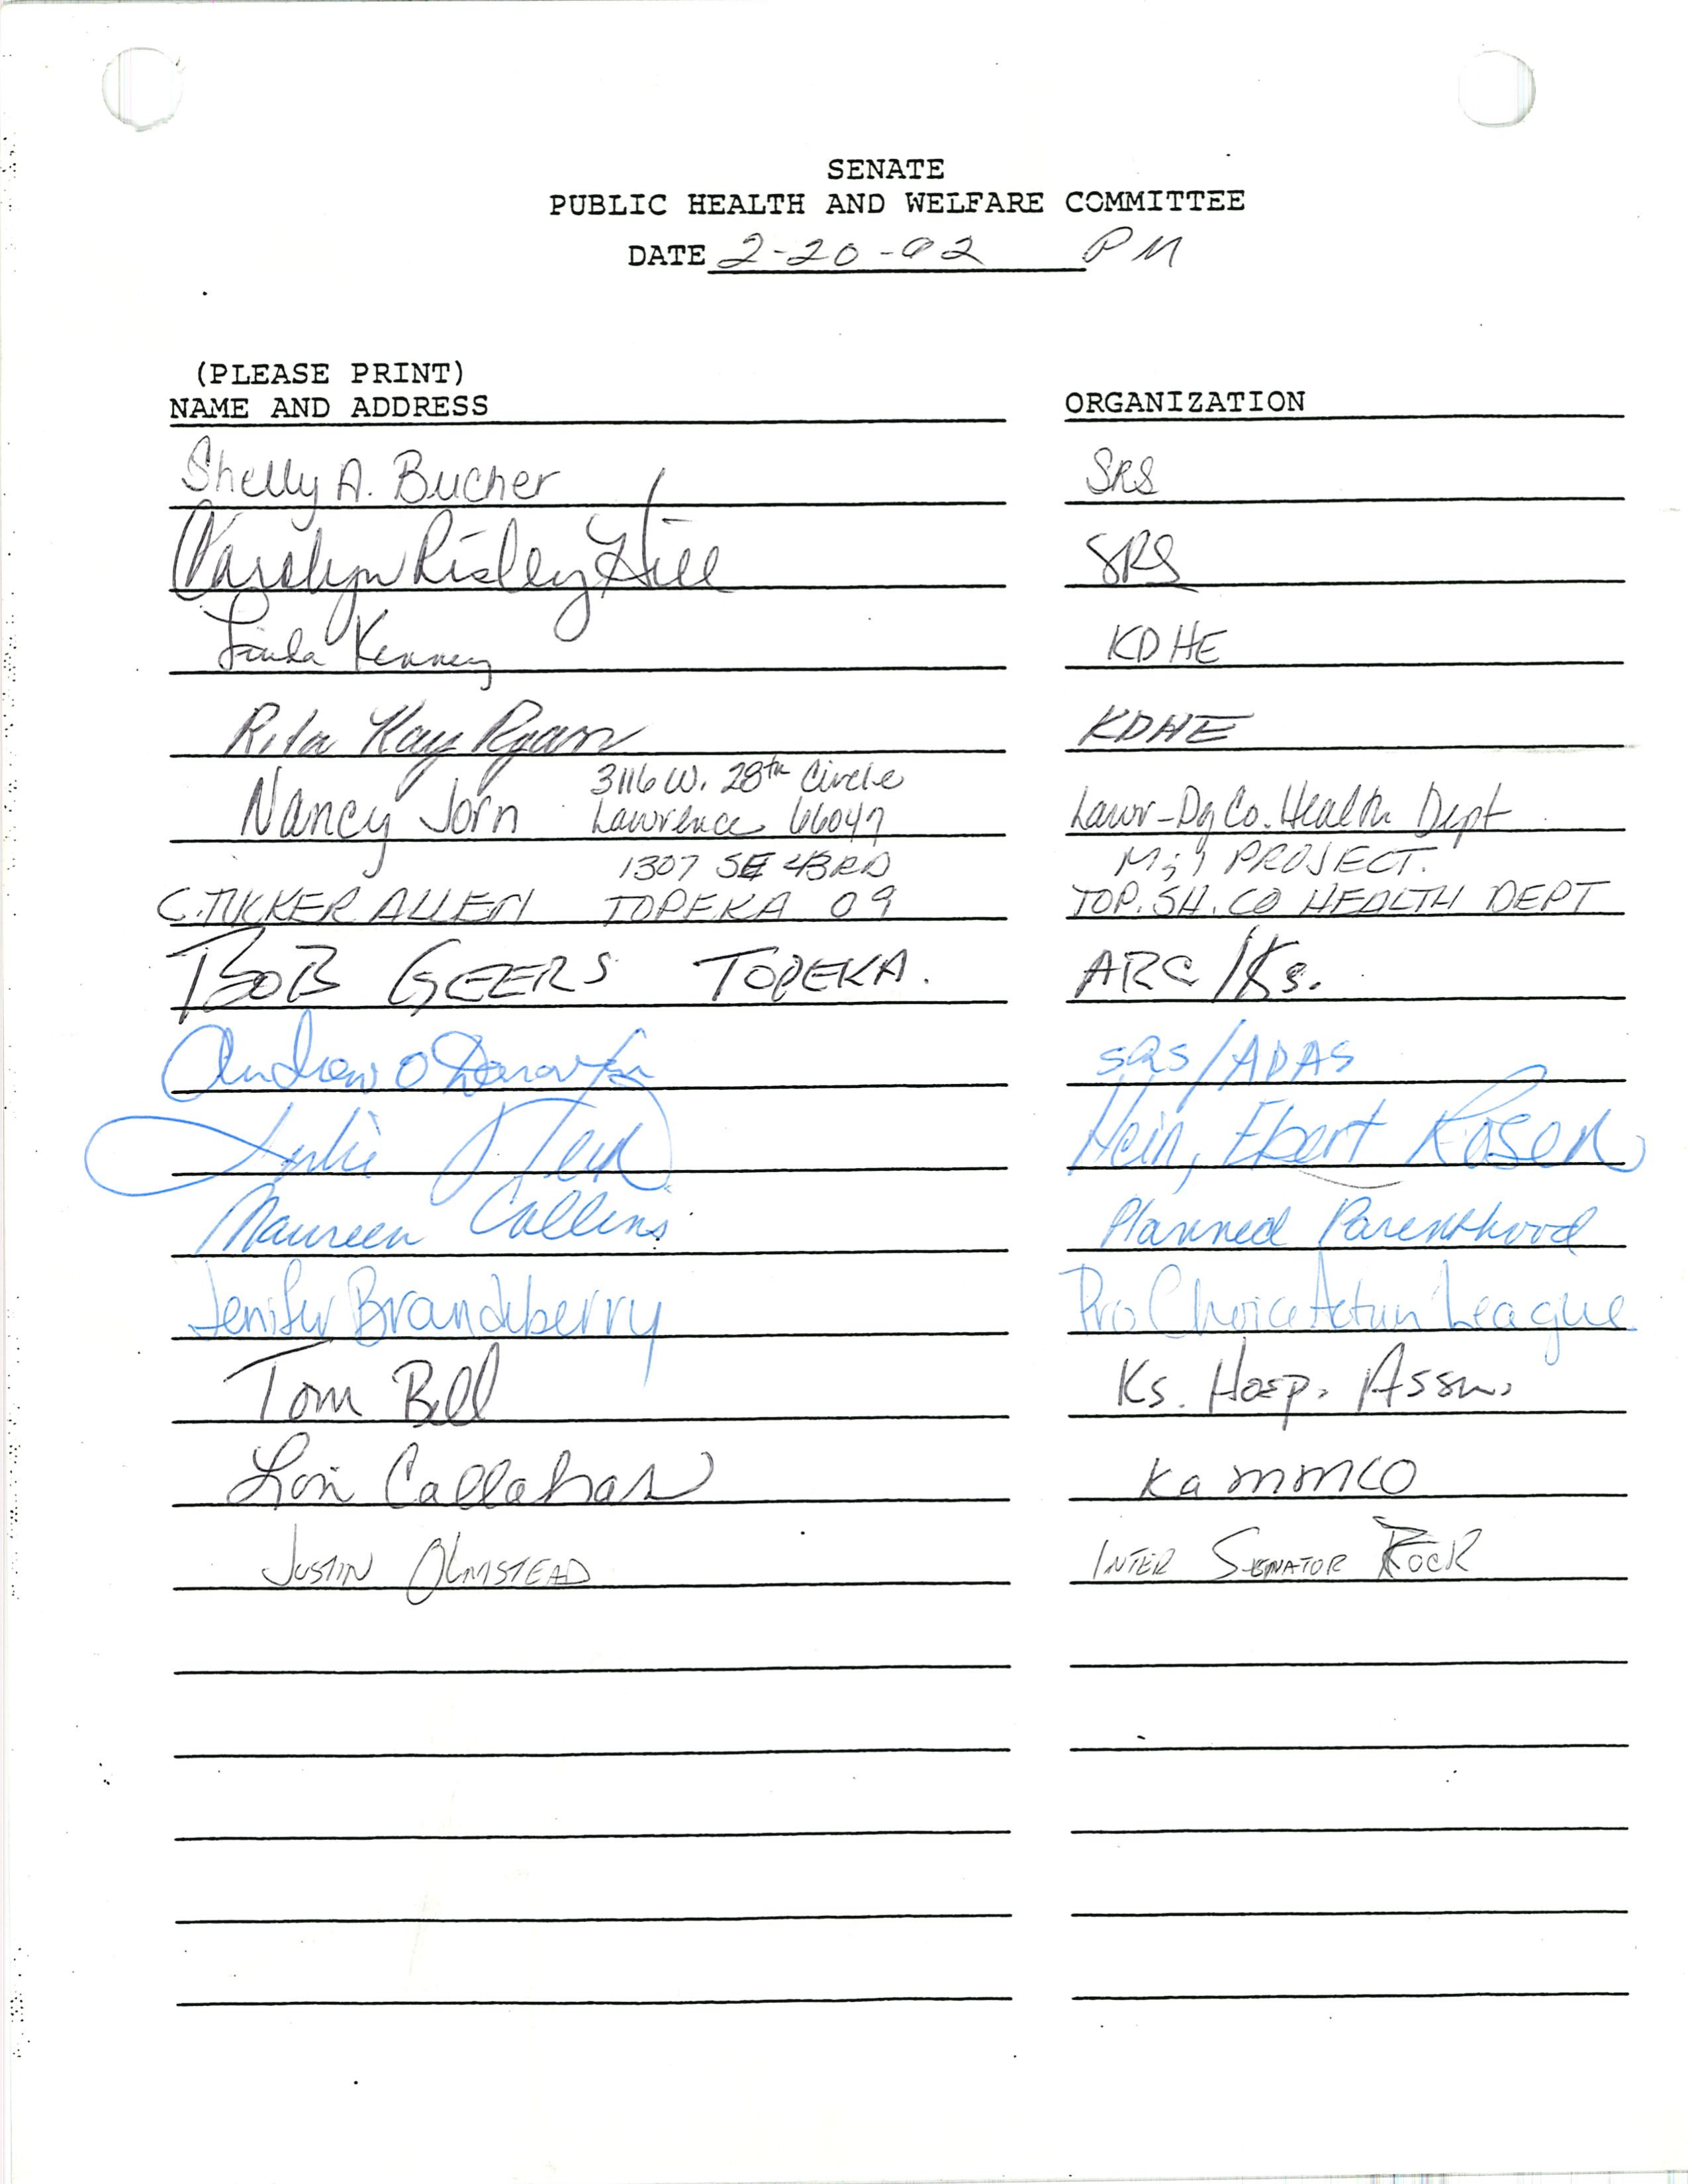 SENATE
PUBLIC HEALTH AND WELFARE COMMITTEE
DATE 2-20-92 PM
(PLEASE PRINT)
NAME AND ADDRESS ORGANIZATION
Shelly A. Bucher SRS
Carolyn Risley Hill SRS
Linda Kenney KDHE
Rita Kay Ryan KDHE
3116 W. 28th Circle
Nancy Jorn Lawrence 66047 Lawr-Dg Co. Health Dept
1307 SE 43RD M&I PROJECT.
C. TUCKER ALLEN TOPEKA 09 TOP. SH. CO HEALTH DEPT
BOB GEERS TOPEKA. ARC/Ks.
Andrew O'Donovan SRS/ADAS
Julie Hein, Ebert Rosen
Maureen Collins Planned Parenthood
Jenifer Brandeberry Pro Choice Action League
Tom Bell Ks. Hosp. Assn.
Lori Callahan KaMMCO
JUSTIN OLMSTEAD INTER SENATOR ROCK